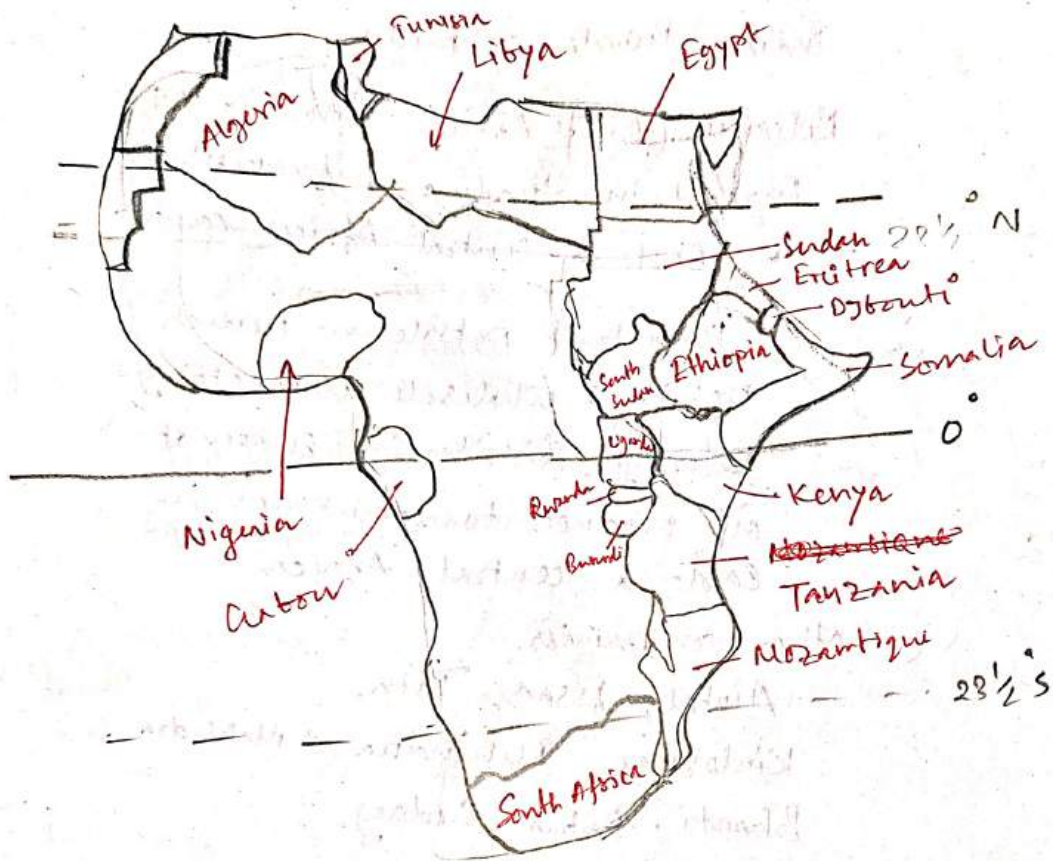 Tunisia
Libya
Egypt
Algeria
° N
Sudan
Eritrea
Djbouti
Ethiopia
Somalia
South
Sudan
0°
Uganda
Kenya
Rwanda
Nigeria
Burundi
Mozambique
Tanzania
Gabon
Mozambique
23 1/2° S
South Africa